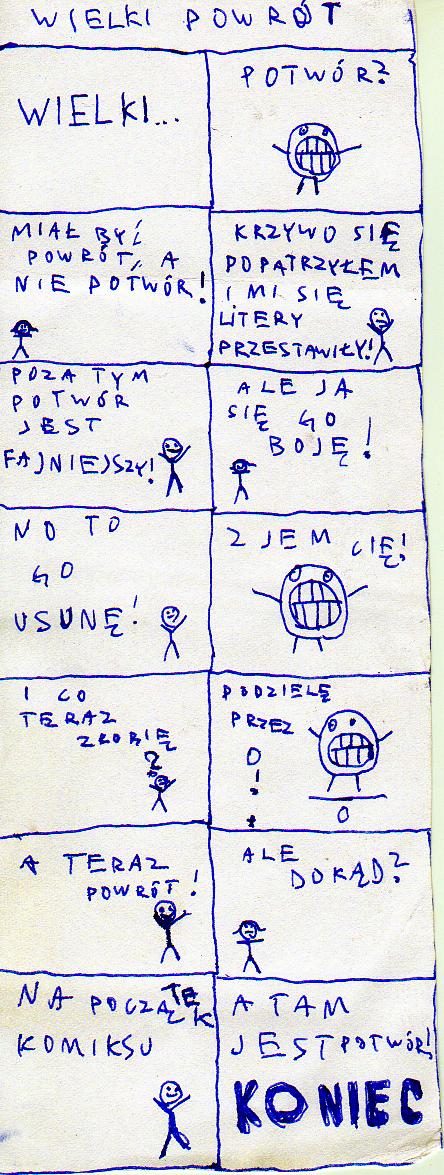 WIELKI POWRÓT
WIELKI...
POTWÓR?
MIAŁ BYĆ
POWRÓT, A
NIE POTWÓR!
KRZYWO SIĘ
POPATRZYŁEM
I MI SIĘ
LITERY
PRZESTAWIŁY!
POZA TYM
POTWÓR
JEST
FAJNIEJSZY!
ALE JA
SIĘ GO
BOJĘ!
NO TO
GO
USUNĘ!
ZJEM CIĘ!
I CO
TERAZ
ZROBIĘ
?
PODZIELĘ
PRZEZ
0
!
0
A TERAZ
POWRÓT!
ALE
DOKĄD?
NA POCZĄTEK
KOMIKSU
A TAM
JEST POTWÓR!
KONIEC